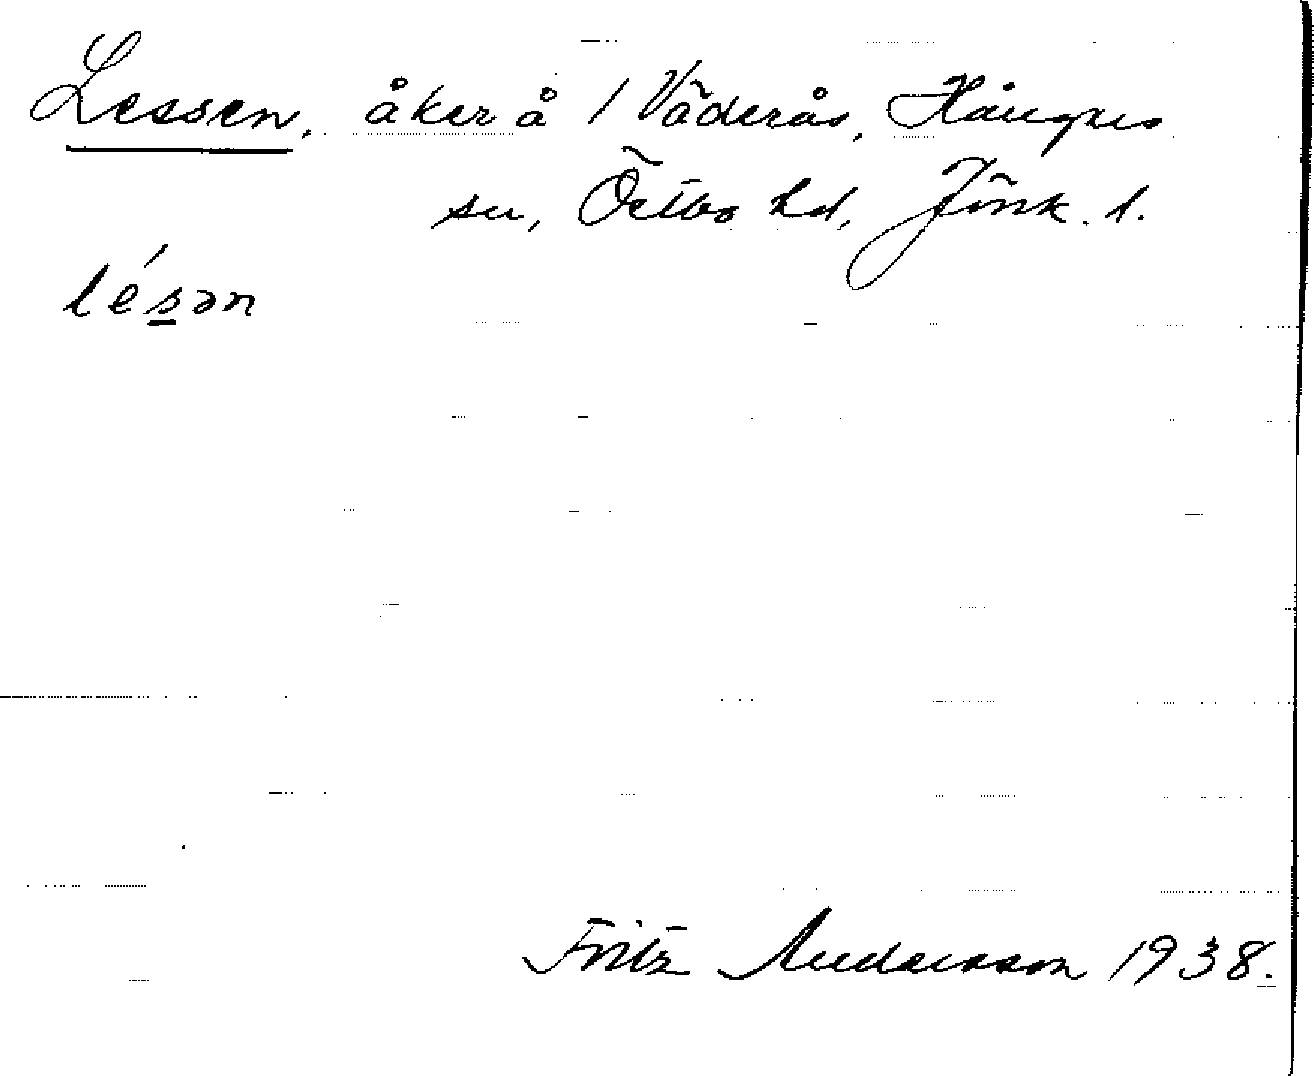 Lessen, åker å 1 Väderås, Hångers
sn, Östbo hd, Jönk. l.
lésən
Fritz Andersson 1938.